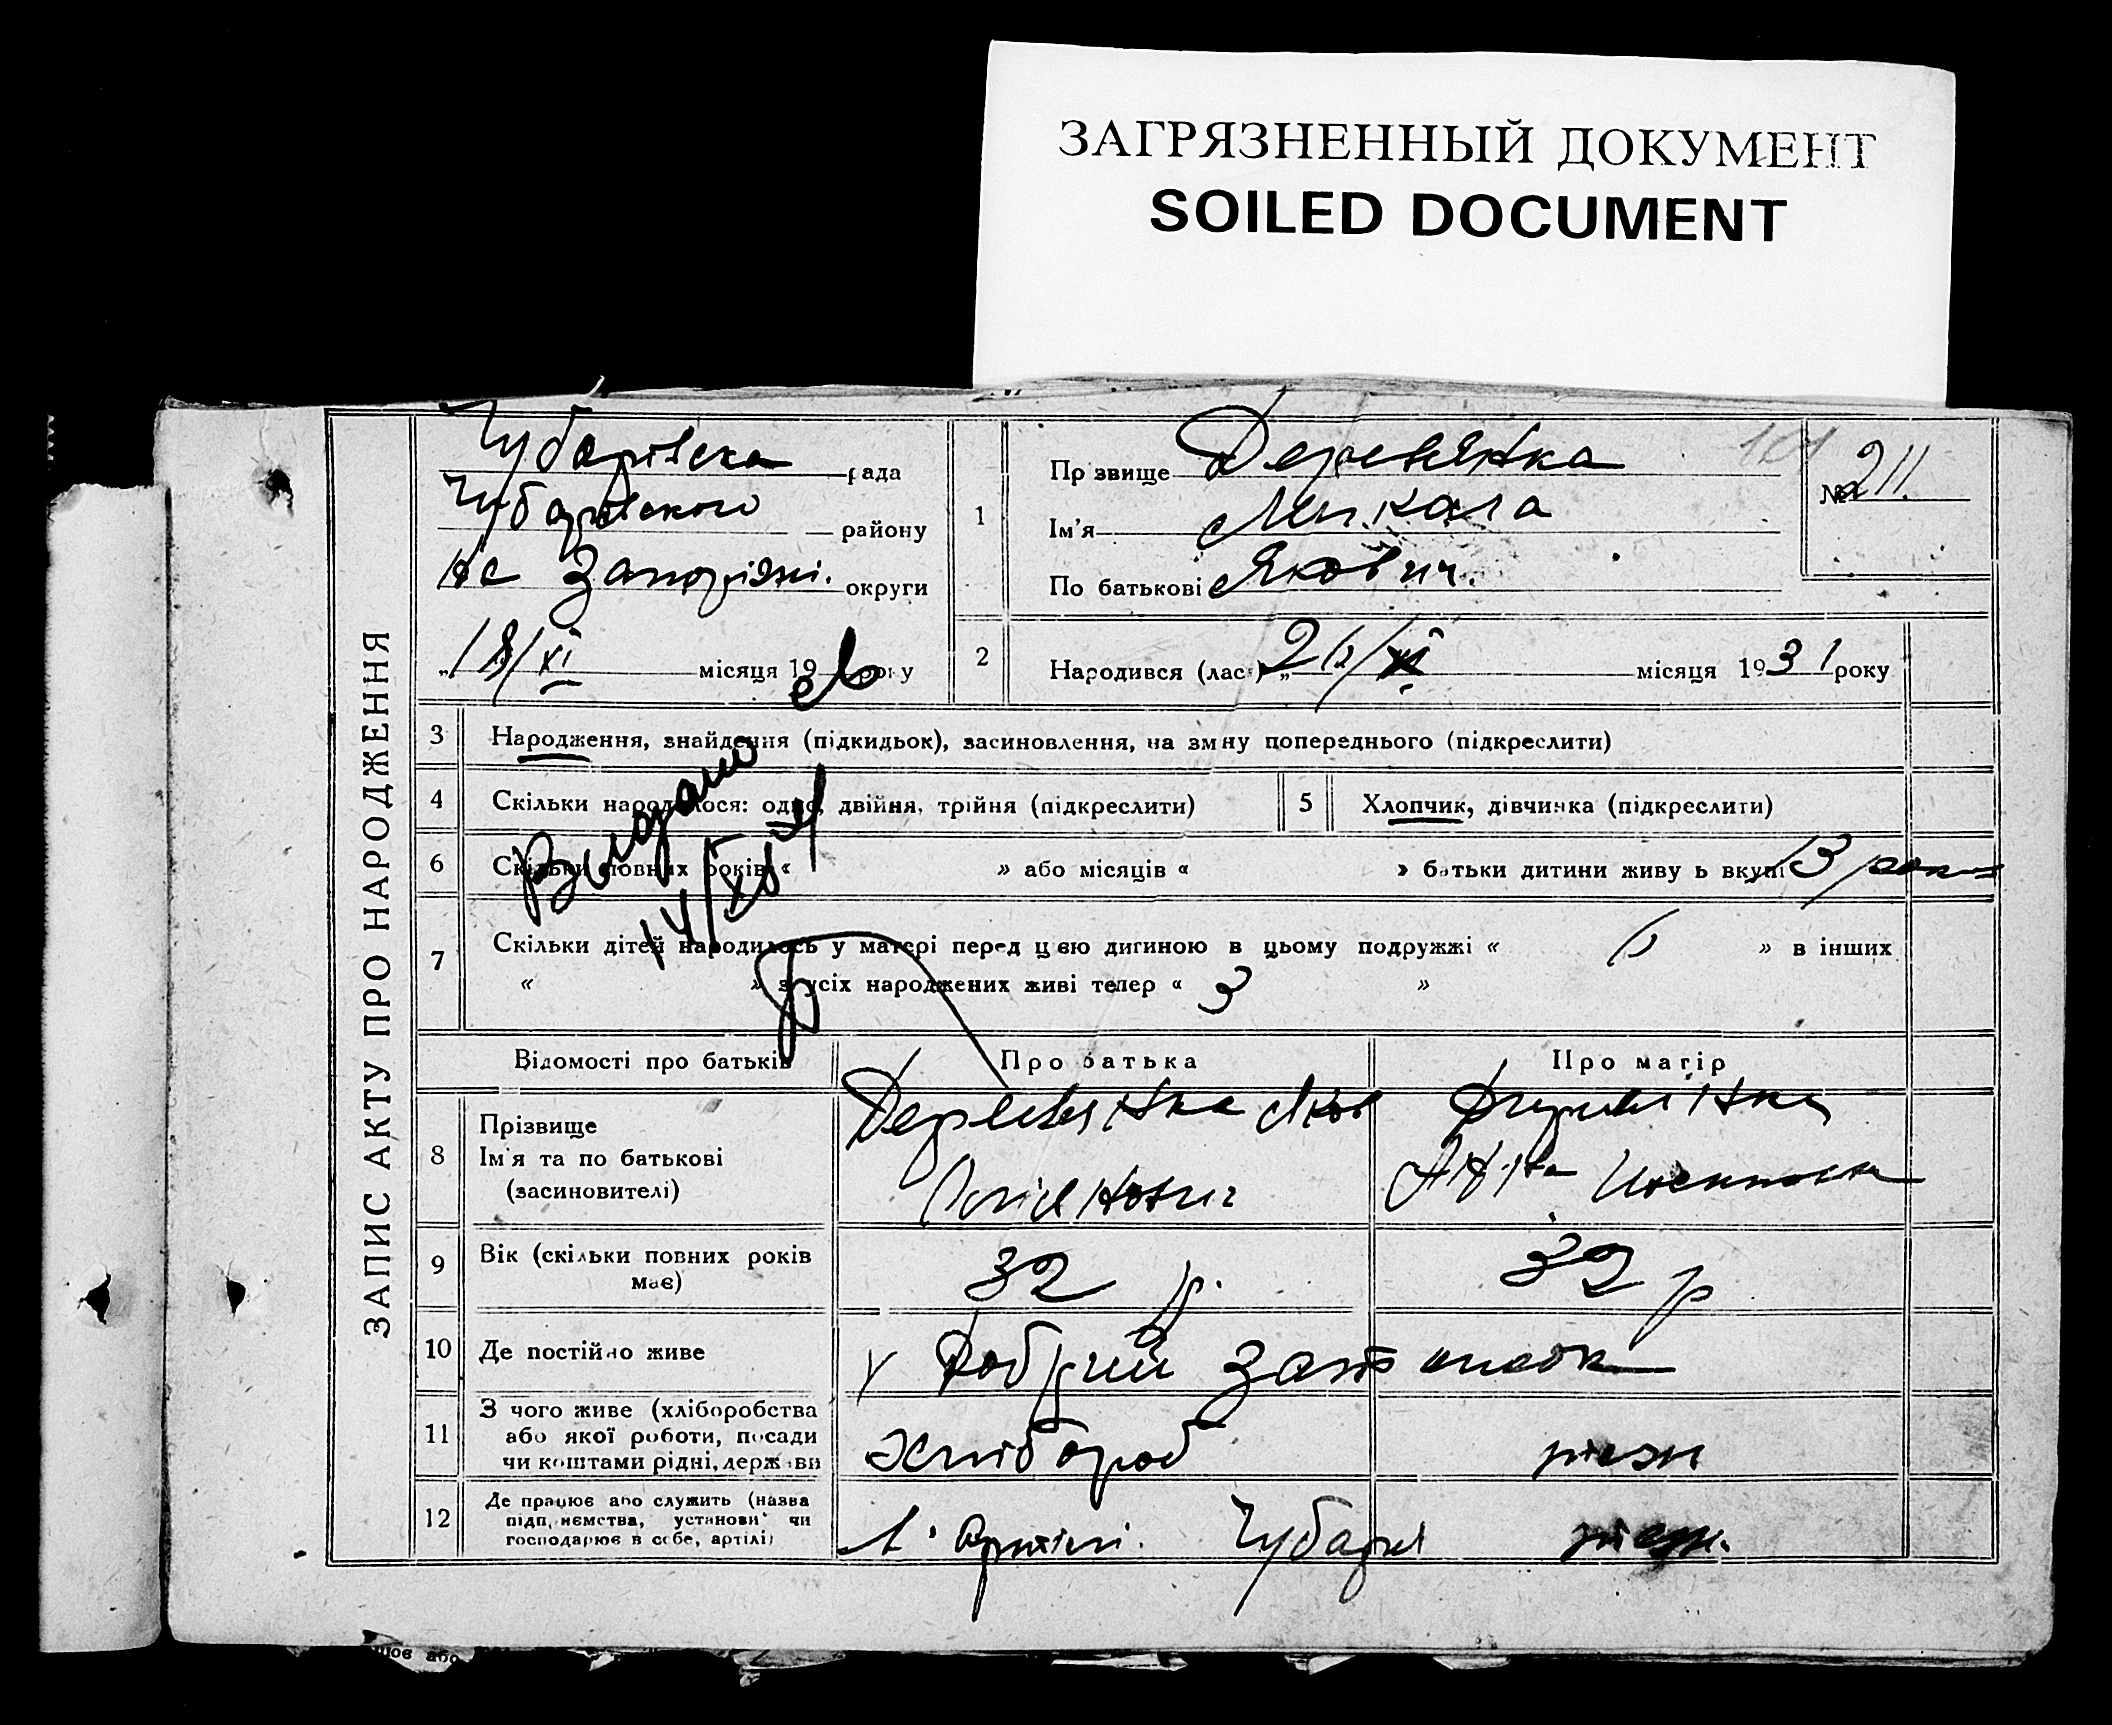 ЗАГРЯЗНЕННЫЙ ДОКУМЕНТ
SOILED DOCUMENT
ЗАПИС АКТУ ПРО НАРОДЖЕННЯ
Чубарівска рада
Чубарівского району
Запоріжні. округи
„18/XI місяця 19 року
1
Прізвище Деревянка
Ім'я Микола
По батькові Якович.
101
№ 211.
2
Народився (лась) „26/XI місяця 1931 року
3 Народження, знайдення (підкидьок), засиновлення, на зміну попереднього (підкреслити)
4 Скільки народилося: одно, двійня, трійня (підкреслити)
5 Хлопчик, дівчинка (підкреслити)
6 Скільки повних років « » або місяців « » батьки дитини живуть вкупі 13 роки
Видано
14/XI
7 Скільки дітей народилось у матері перед цією дитиною в цьому подружжі « 6 » в інших
« » з усіх народжених живі тепер « 3 »
Відомості про батьків
Про батька
Про матір
8 Прізвище
Ім'я та по батькові
(засиновителі)
Деревянка Яков
Деревянка
9 Вік (скільки повних років
має)
32 р.
32 р
10 Де постійно живе
у Добрий Затишок
11 З чого живе (хліборобства
або якої роботи, посади
чи коштами рідні, держави
Хлібороб
12 Де працює або служить (назва
підприємства, установи чи
господарює в себе, артілі)
В. Артілі. Чубаря
шов або